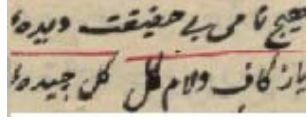 هیچ نامی بی حقیقت دیدهٔ
یا ز کاف و لام گل گل چیدهٔ